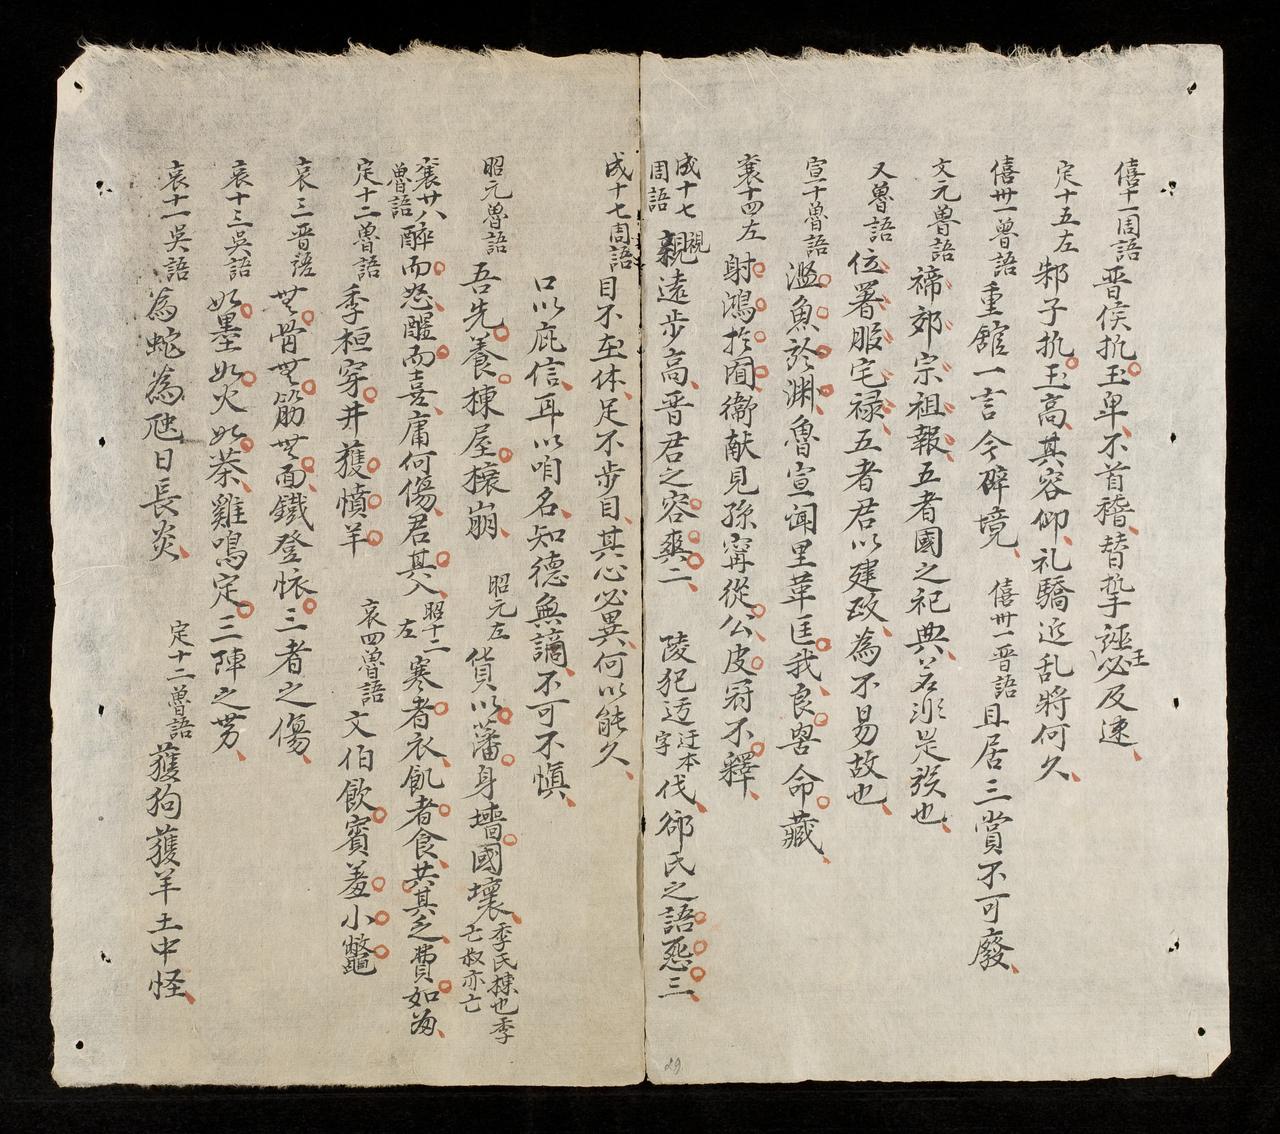 僖十一周語 晋侯抗玉卑不首稽替摯誣王必及速
定十五左 邾子抗玉高其容仰礼驕近乱將何久
僖卅一魯語 重舘一言今辟境 僖卅一晋語 且居三賞不可廢
文元魯語 禘郊宗祖報五者國之祀典若渉是族也
又魯語 位署服宅禄五者君以建政為不易故也
宣十魯語 濫魚於渊魯宣闻里革匡我良罟命藏
襄十四左 射鴻扵囿衞献見孫甯從公皮冠不釋
成十七周語 視 親遠步高晋君之容爽二 陵犯迋 迂本字 伐郤氏之語怨三
成十七周語 目不在体足不步目其心必異何以能久
口以庇信耳以听名知德無謫不可不慎
昭元魯語 吾先養棟屋榱崩 昭元左 貨以藩身墻國壞 季氏棟也季亡叔亦亡
襄廿八魯語 醉而怒醒而喜庸何傷君其入 昭十二左 寒者衣飢者食共其乏費如
定十二魯語 季桓穿井獲憤羊 哀四魯語 文伯飲賓羞小鼈
哀三晋語 無骨無筋無面鐵登㤈三者之傷
哀十三吳語 如墨如火如荼雞鳴定三陣之勇
哀十一吳語 為蛇為虺日長炎 定十二魯語 獲狗獲羊土中怪
29